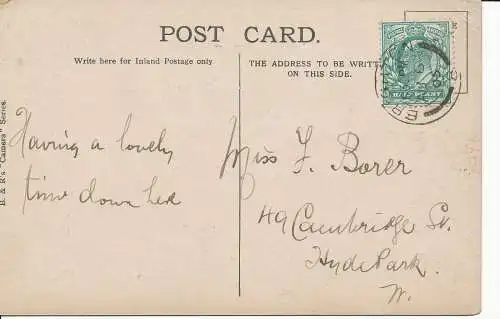 POST CARD.
Write here for Inland Postage only
THE ADDRESS TO BE WRITTEN
ON THIS SIDE.
HALFPENNY
B. & R's "Camera" Series.
Having a lovely
time down here
Miss F. Borer
49 Cambridge St.
Hyde Park.
W.